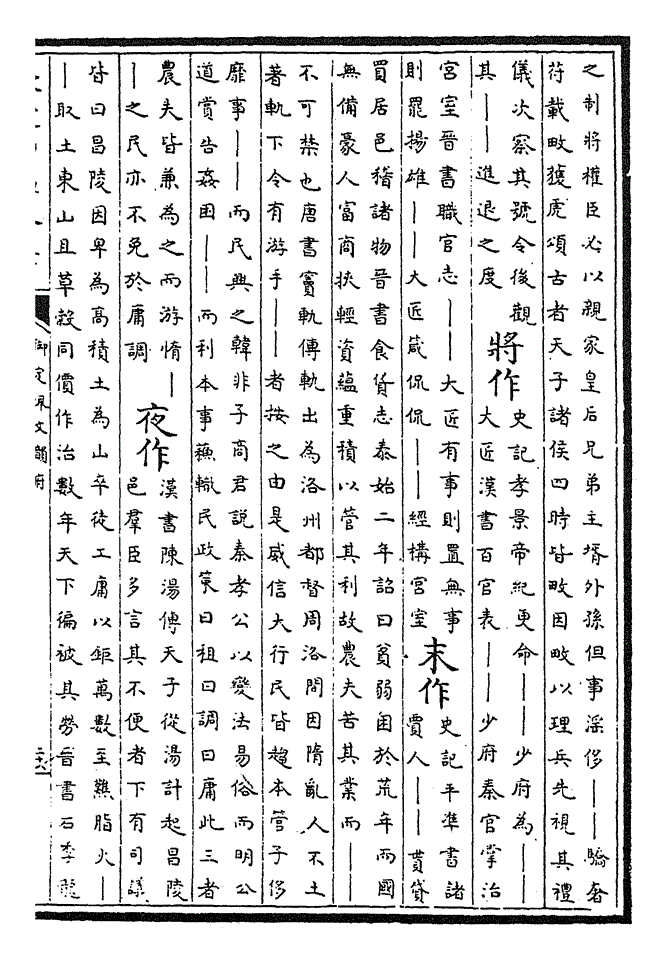 之制將權臣必以親家皇后兄弟主壻外孫但事淫侈——驕奢
符載畋獲虎頌古者天子諸侯四時皆畋因畋以理兵先視其禮
儀次察其號令後觀
其——進退之度
將作
史記孝景帝紀更命——少府為——
大匠漢書百官表——少府秦官掌治
宮室晉書職官志——大匠有事則置無事
則罷揚雄——大匠箴侃侃——經構宮室
末作
史記平準書諸
賈人——貰貸
買居邑稽諸物晉書食貨志泰始二年詔曰貧弱困於荒年而國
無備豪人富商挾輕資蘊重積以管其利故農夫苦其業而——
不可禁也唐書竇軌傳軌出為洛州都督周洛間因隋亂人不土
著軌下令有游手——者按之由是威信大行民皆趨本管子侈
靡事——而民興之韓非子商君說秦孝公以變法易俗而明公
道賞告姦困——而利本事蘇轍民政策曰租曰調曰庸此三者
農夫皆兼為之而游惰—
—之民亦不免於庸調
夜作
漢書陳湯傳天子從湯計起昌陵
邑羣臣多言其不便者下有司議
皆曰昌陵因卑為高積土為山卒徒工庸以鉅萬數至然脂火—
—取土東山且草穀同價作治數年天下徧被其勞晉書石季龍
御定佩文韻府